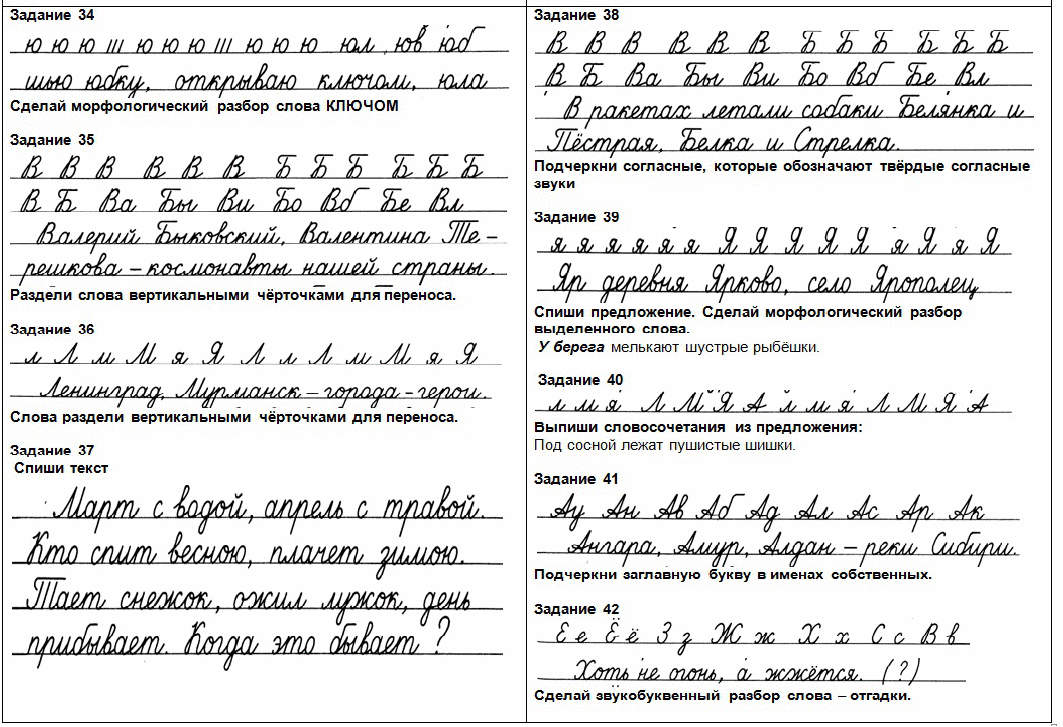 Задание 34
ю ю ю ш ю ю ю ш ю ю ю юл юв юб
шью юбку, открываю ключом, юла
Сделай морфологический разбор слова КЛЮЧОМ
Задание 35
В В В В В В Б Б Б Б Б Б
В Б Ва Бы Ви Бо Вб Бе Вл
Валерий Быковский, Валентина Те-
решкова – космонавты нашей страны.
Раздели слова вертикальными чёрточками для переноса.
Задание 36
л Л м М я Я Л л Л м М я Я
Ленинград, Мурманск – города - герои.
Слова раздели вертикальными чёрточками для переноса.
Задание 37
Спиши текст
Март с водой, апрель с травой.
Кто спит весною, плачет зимою.
Тает снежок, ожил лужок, день
прибывает. Когда это бывает ?
Задание 38
В В В В В В Б Б Б Б Б Б
В Б Ва Бы Ви Бо Вб Бе Вл
В ракетах летали собаки Белянка и
Пёстрая, Белка и Стрелка.
Подчеркни согласные, которые обозначают твёрдые согласные
звуки
Задание 39
я я я я я я Я Я Я Я Я я Я я Я
Яр деревня Ярково, село Ярополец
Спиши предложение. Сделай морфологический разбор
выделенного слова.
У берега мелькают шустрые рыбёшки.
Задание 40
л м я Л М Я А л м я Л М Я А
Выпиши словосочетания из предложения:
Под сосной лежат пушистые шишки.
Задание 41
Ау Ан Ав Аб Ад Ал Ас Ар Ак
Ангара, Амур, Алдан – реки Сибири.
Подчеркни заглавную букву в именах собственных.
Задание 42
Е е Ё ё З з Ж ж Х х С с В в
Хоть не огонь, а жжётся. (?)
Сделай звукобуквенный разбор слова – отгадки.